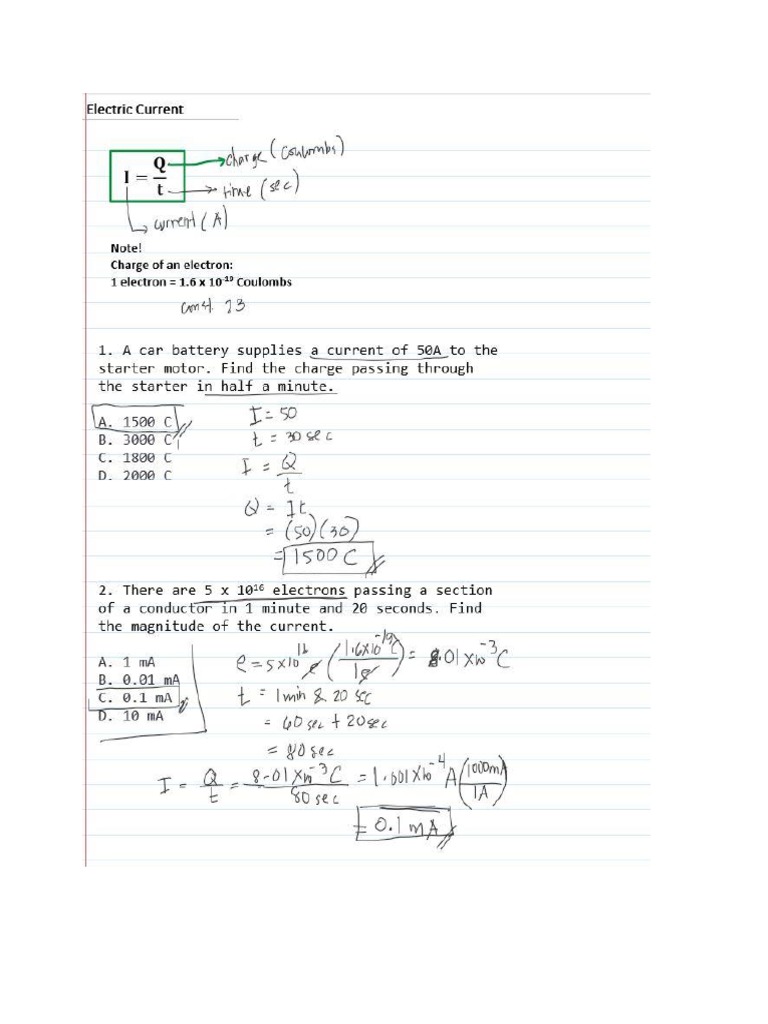 Electric Current
I = Q/t
charge (Coulombs)
time (sec)
current (A)
Note!
Charge of an electron:
1 electron = 1.6 x 10⁻¹⁹ Coulombs
const 23
1. A car battery supplies a current of 50A to the
starter motor. Find the charge passing through
the starter in half a minute.
A. 1500 C
B. 3000 C
C. 1800 C
D. 2000 C
I = 50
t = 30 sec
I = Q/t
Q = It
= (50)(30)
= 1500 C
2. There are 5 x 10¹⁶ electrons passing a section
of a conductor in 1 minute and 20 seconds. Find
the magnitude of the current.
A. 1 mA
B. 0.01 mA
C. 0.1 mA
D. 10 mA
e = 5x10¹⁶ e (1.6x10⁻¹⁹ C / 1e) = 8.01 x10⁻³ C
t = 1 min & 20 sec
= 60 sec + 20 sec
= 80 sec
I = Q/t = 8.01 x10⁻³ C / 80 sec = 1.001 x10⁻⁴ A (1000mA / 1A)
= 0.1 mA